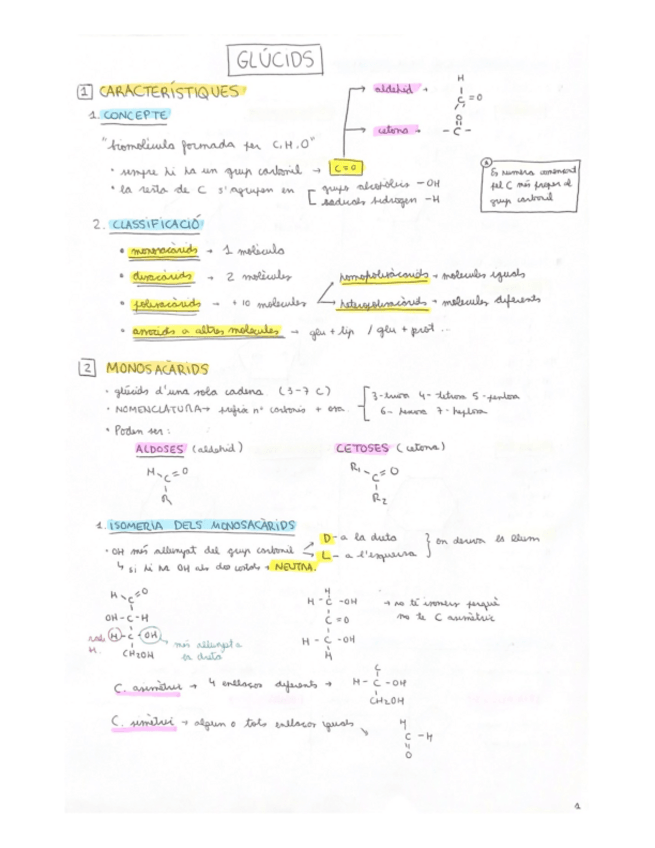 GLÚCIDS
1 CARACTERÍSTIQUES
1. CONCEPTE
aldehid →
H
C=O
cetona →
O
-C-
"biomolècula formada per C, H, O"
• sempre hi ha un grup carbonil → C=O
• la resta de C s'agrupen en [ grups alcohòlics -OH
radicals hidrogen -H
Es numera començant
pel C més proper al
grup carbonil
2. CLASSIFICACIÓ
• monosacàrids → 1 molècula
• disacàrids → 2 molècules
• polisacàrids → +10 molècules
homopolisacàrids → molècules iguals
heteropolisacàrids → molècules diferents
• associats a altres molècules → glu + lip / glu + prot ...
2 MONOSACÀRIDS
• glúcids d'una sola cadena (3-7 C)
• NOMENCLATURA → prefix nº carbonis + osa
3-triosa 4-tetrosa 5-pentosa
6-hexosa 7-heptosa
• Poden ser:
ALDOSES (aldehid)
CETOSES (cetona)
H C=O
R
R1 C=O
R2
1. ISOMERIA DELS MONOSACÀRIDS
• OH més allunyat del grup carbonil
D- a la dreta
L- a l'esquerra
} on
↳ si hi ha OH als dos costats → NEUTRA.
H C=O
OH-C-H
H-C-OH
CH2OH
H.
més allunyat a
la dreta
H
H-C-OH
C=O
H-C-OH
H
→ no té isòmers perquè
no té C asimètric
C. asimètric → 4 enllaços diferents →
C
H-C-OH
CH2OH
C. simètric → algun o tots enllaços iguals
H
C-H
O
1